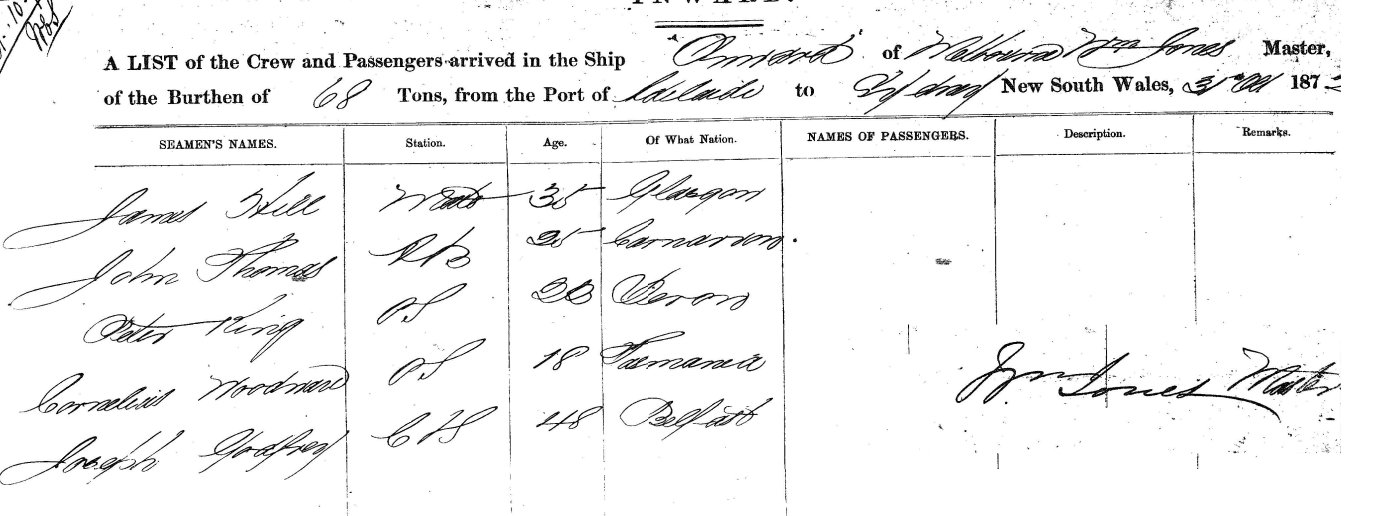 INWARD.
A LIST of the Crew and Passengers arrived in the Ship "Onward" of Melbourne Wm Jones Master,
of the Burthen of 68 Tons, from the Port of Adelaide to Sydney New South Wales, 31st Oct 187
SEAMEN'S NAMES. Station. Age. Of What Nation. NAMES OF PASSENGERS. Description. Remarks.
James Hill Mate 35 Glasgow
John Thomas AB 25 Carnarvon.
Peter King OS Devon
Cornelius Woodward OS 18 Tasmania
Joseph Godfrey 48 Belfast
Wm Jones Master